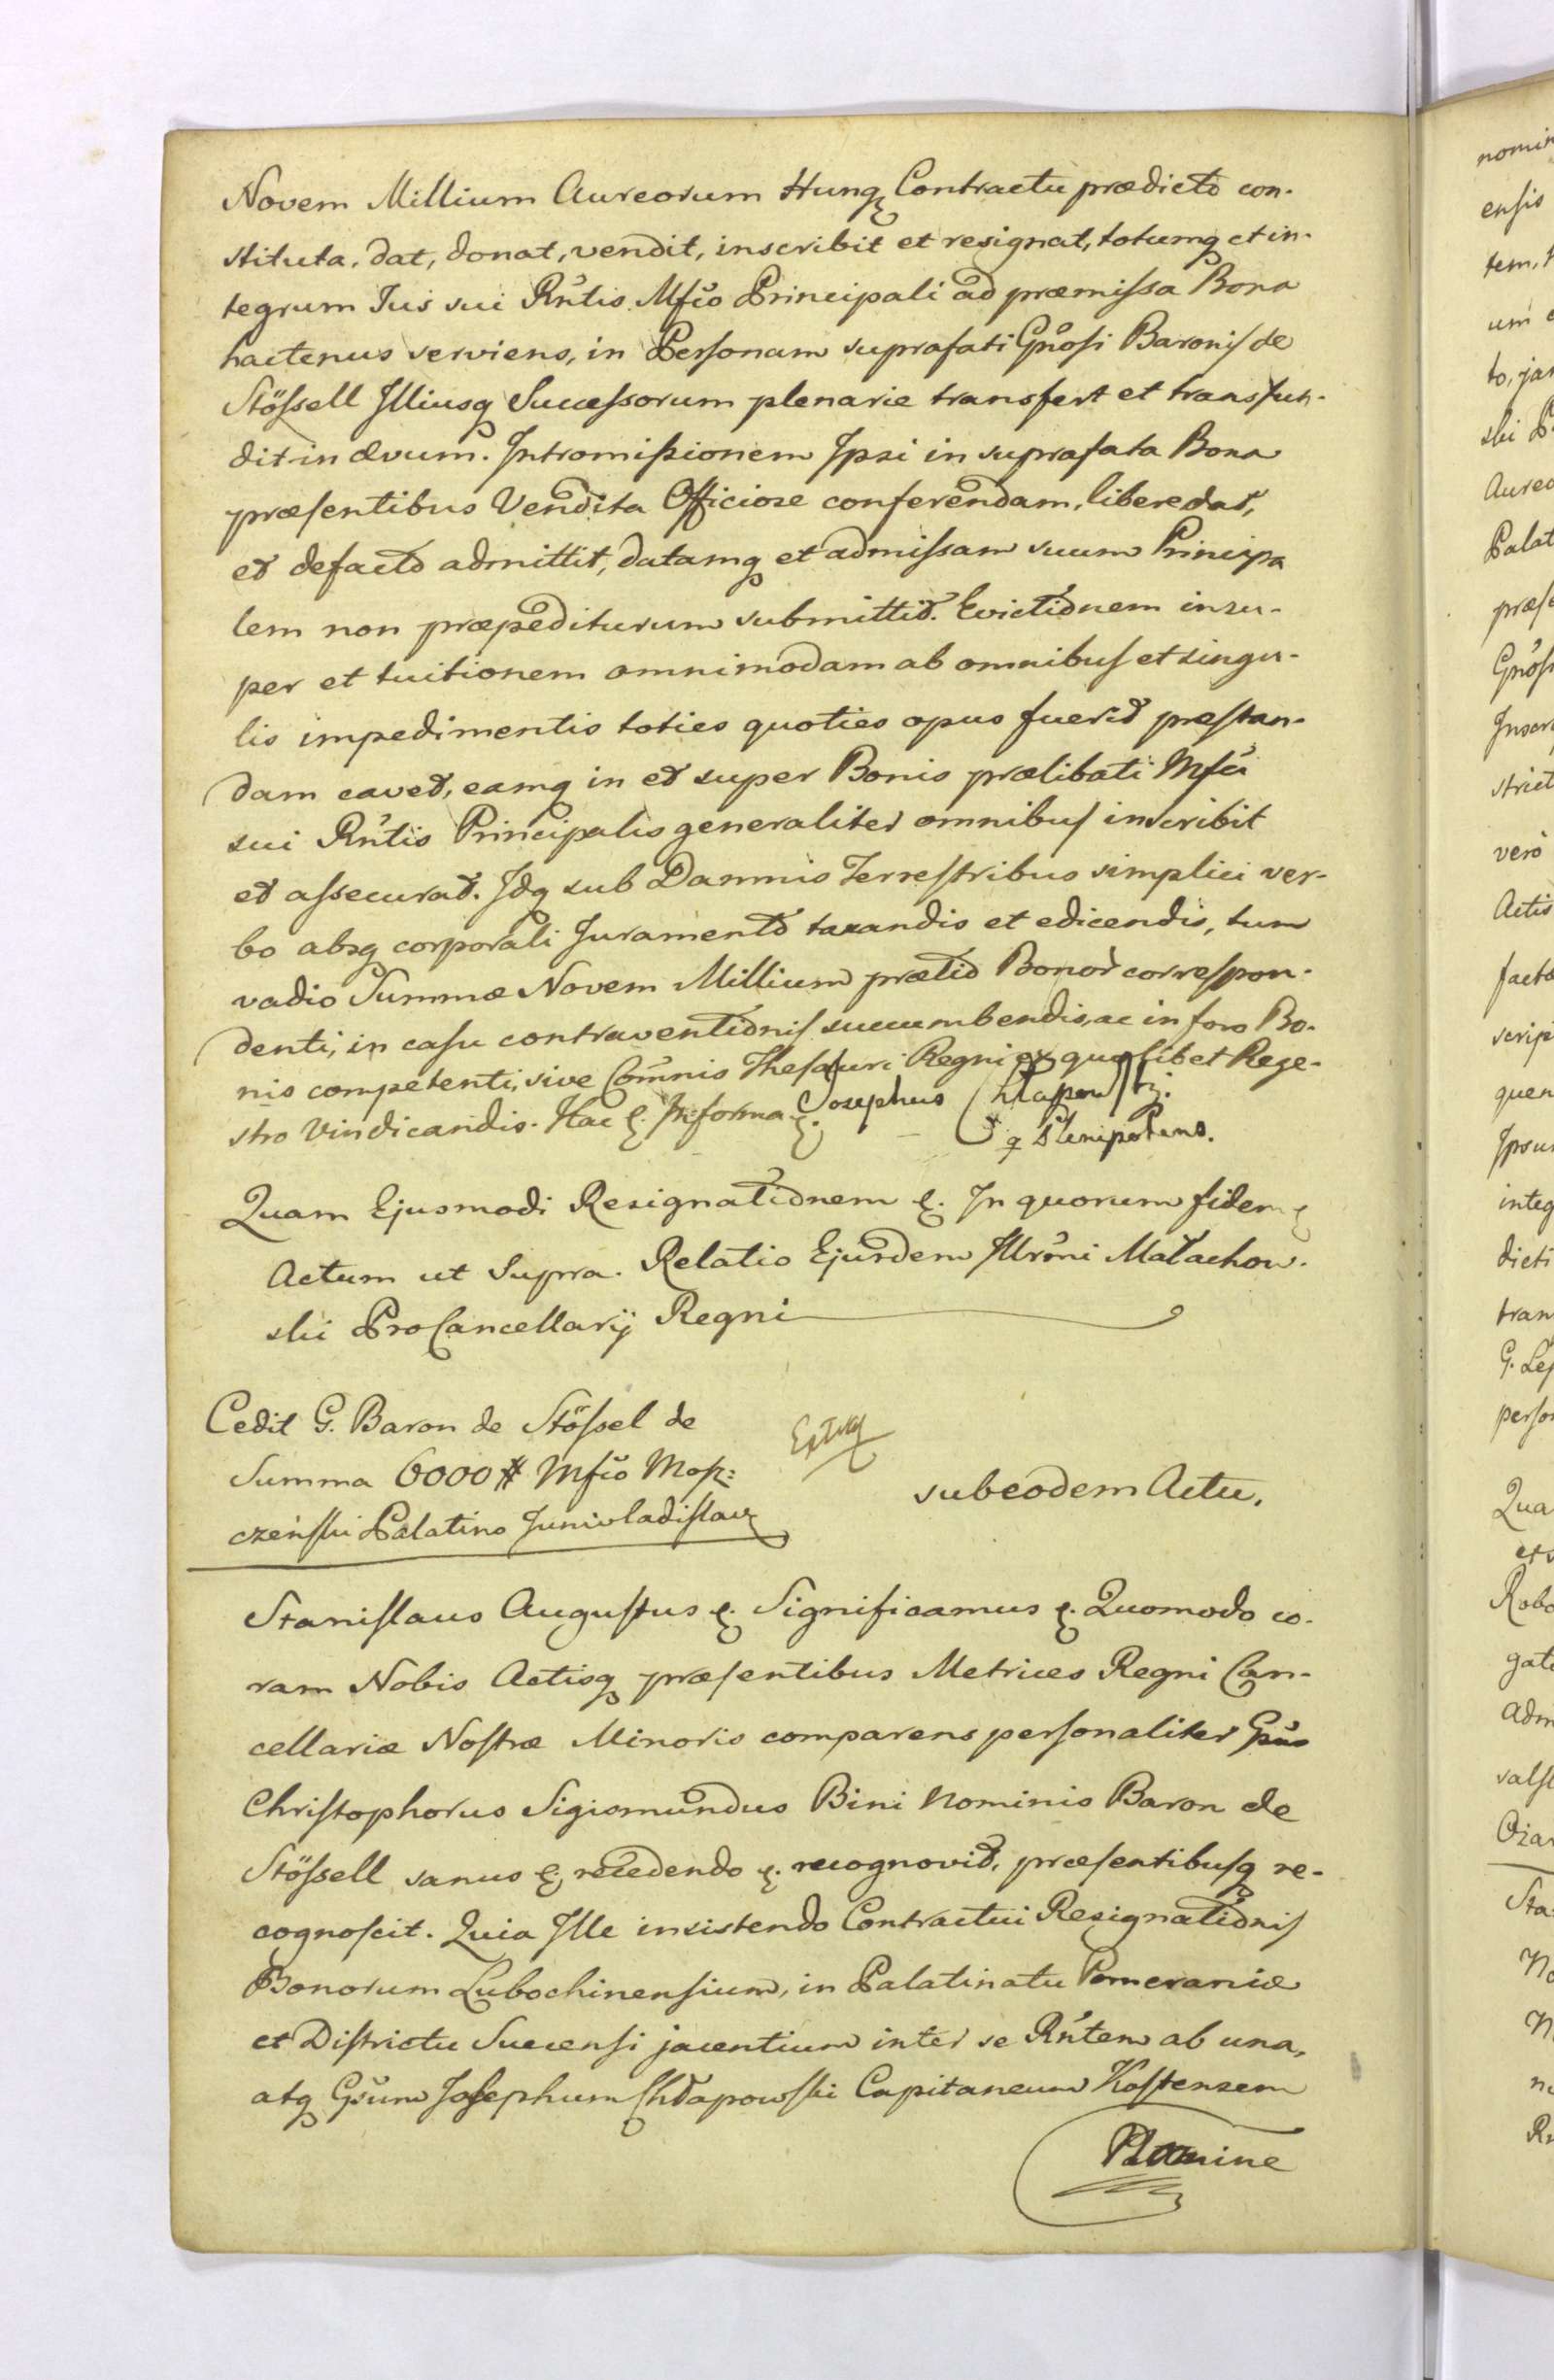 Novem Millium Aureorum Hung Contractu prædicto con-
stituta, dat, donat, vendit, inscribit et resignat, totumq et in-
tegrum Jus sui Rntis Mfico Principali ad præmissa Bona
hactenus serviens, in Personam suprafati Gnosi Baronis de
Stössell Illiusq Successorum plenarie transfert et transfun-
dit in ævum. Intromissionem Ipsi in suprafata Bona
præsentibus Vendita Officiose conferendam, libere dat,
et defacto admittit, datamq et admissam suum Principa
lem non præpediturum submittit. Evictionem insu-
per et tuitionem omnimodam ab omnibus et singu-
lis impedimentis toties quoties opus fuerit præstan-
dam cavet, eamq in et super Bonis prælibati Mfci
sui Rntis Principalis generaliter omnibus inscribit
et assecurat. Idq sub Damnis Terrestribus simplici ver-
bo absq corporali Juramento taxandis et edicendis, tum
vadio Summæ Novem Millium prætio Bonor correspon-
denti, in casu contraventionis succumbendis, ac in foro Bo-
nis competenti, sive Comnis Thesauri Regni ex quolibet Rege-
stro Vindicandis. Hac &. In forma &. Josephus Chłapowski.
q Plenipotens.
Quam Ejusmodi Resignationem &. In quorum fidem &
Actum ut Supra. Relatio Ejusdem Illrmi Małachow-
ski ProCancellarij Regni
Cedit G. Baron de Stössel de
Summa 6000 # Mfico Mosz:
czeński Palatino Junivladislav
subeodem Actu.
Stanislaus Augustus &. Significamus &. Quomodo co-
ram Nobis Actisq præsentibus Metrices Regni Can-
cellariæ Nostræ Minoris comparens personaliter Gnus
Christophorus Sigismundus Bini Nominis Baron de
Stössell sanus &. recedendo &. recognovit, præsentibusq re-
cognoscit. Quia Ille insistendo Contractui Resignationis
Bonorum Lubochinensium, in Palatinatu Pomeraniæ
et Districtu Suecensi jacentium inter se Rntem ab una,
atq Gsum Josephum Chłapowski Capitaneum Kostensem